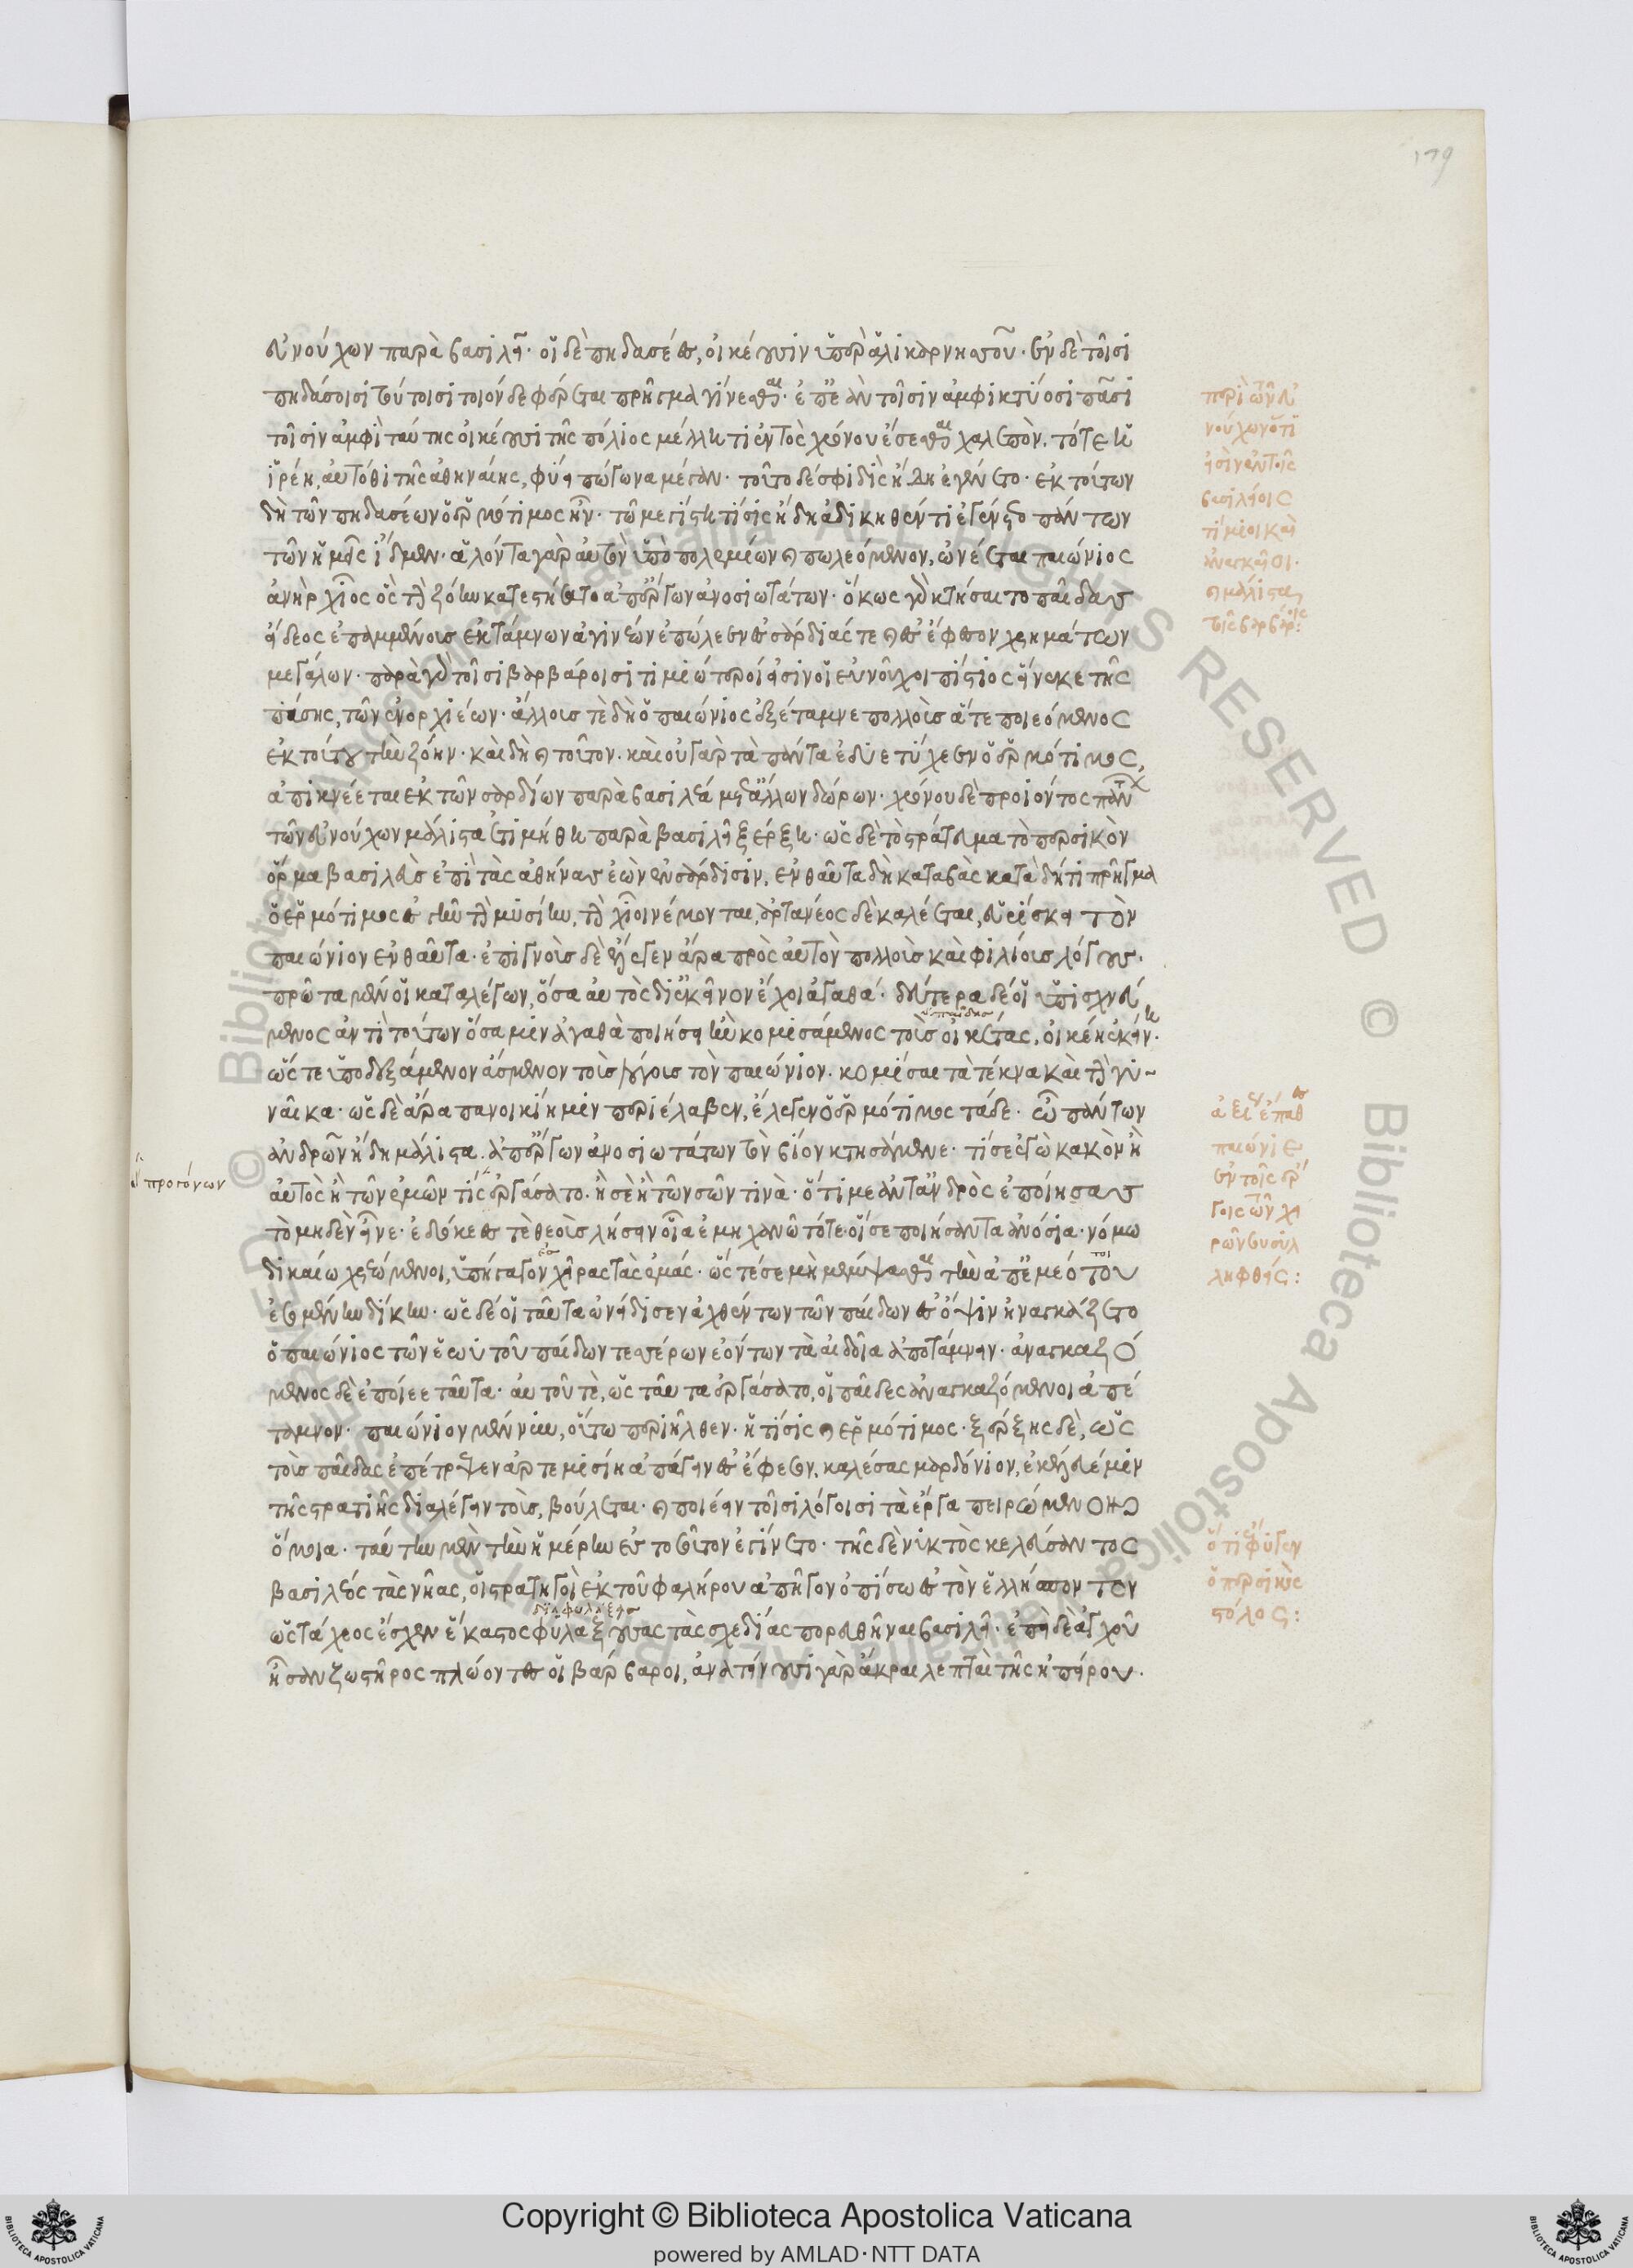 179
εὐνούχων παρὰ βασιλεῖ· οἱ δὲ πηδασέες, οἰκέουσιν ὑπὲρ ἁλικαρνησοῦ· ἐν δὲ τοῖσι
πηδάσοισι τούτοισι τοιόνδε φέρεται πρῆγμα γίνεσθαι· ἐπεὰν τοῖσιν ἀμφικτύοσι πᾶσι
τοῖσιν ἀμφὶ ταύτης οἰκέουσι τῆς πόλιος μέλλη τι ἐντὸς χρόνου ἔσεσθαι χαλεπὸν. τότε ἡ
ἱρέη, αὐτόθι τῆς ἀθηναίης, φύει πώγωνα μέγαν· τοῦτο δέ σφι δὶς ἤδη ἐγένετο· ἐκ τούτων
δὴ τῶν πηδασέων ὁ ἑρμότιμος ἦν· τῶ μεγίστη τίσις ἤδη ἀδικηθέντι ἐγένετο πάντων
τῶν ἡμεῖς ἴδμεν· ἁλόντα γὰρ αὐτὸν ὑπὸ πολεμίων καὶ πωλεόμενον, ὠνέεται παιώνιος
ἀνὴρ χῖος ὃς τὴν ζόην κατεστήσατο ἀπ' ἔργων ἀνοσιωτάτων· ὅκως γὰρ κτήσαιτο παῖδας
εἴδεος ἐπαμμένους ἐκτάμνων ἀγινέων ἐπώλεεν ἐς σάρδιάς τε καὶ ἐς ἔφεσον χρημάτων
μεγάλων· παρὰ γὰρ τοῖσι βαρβάροισι τιμιώτεροί εἰσιν οἱ εὐνοῦχοι πίστιος εἵνεκε τῆς
πάσης, τῶν ἐνορχιέων· ἄλλους τε δὴ ὁ παιώνιος ἐξέταμνε πολλοὺς ἅτε ποιεόμενος
ἐκ τούτου τὴν ζόην· καὶ δὴ καὶ τοῦτον. καὶ οὐ γὰρ τὰ πάντα ἐδυστύχεεν ὁ ἑρμότιμος,
ἀπικνέεται ἐκ τῶν σαρδίων παρὰ βασιλέα μετ' ἄλλων δώρων· χρόνου δὲ προϊόντος πάντων
τῶν εὐνούχων μάλιστα ἐτιμήθη παρὰ βασιλεῖ ξέρξη· ὡς δὲ τὸ στράτευμα τὸ περσικὸν
ὅρμα βασιλεὺς ἐπὶ τὰς ἀθήνας ἐὼν ἐν σάρδισιν, ἐνθαῦτα δὴ καταβὰς κατὰ δή τι πρῆγμα
ὁ ἑρμότιμος ἐς γῆν τὴν μυσίην, τὴν χῖοι νέμονται, ἀρτανέος δὲ καλέεται, εὑρίσκει τὸν
παιώνιον ἐνθαῦτα· ἐπιγνοὺς δὲ ἔλεγεν ἄρα πρὸς αὐτὸν πολλοὺς καὶ φιλίους λόγους·
πρῶτα μέν οἱ καταλέγων, ὅσα αὐτὸς δι' ἐκεῖνον ἔχοι ἀγαθά· δεύτερα δέ οἱ ὑπισχνεύ
μενος ἀντὶ τούτων ὅσα μιν ἀγαθὰ ποιήσει ἢν κομισάμενος τοὺς οἰκέτας, οἰκέη ἐκείνη·
ὥστε ὑποδεξάμενον ἄσμενον τοὺς λόγους τὸν παιώνιον. κομίσαι τὰ τέκνα καὶ τὴν γυ-
ναῖκα· ὡς δὲ ἄρα πανοικίη μιν περιέλαβεν, ἔλεγεν ὁ ἑρμότιμος τάδε· ὦ πάντων
ἀνδρῶν ἤδη μάλιστα ἀπ' ἔργων ἀνοσιωτάτων τὸν βίον κτησάμενε· τί σε ἐγὼ κακὸν ἢ
αὐτὸς ἢ τῶν ἐμῶν τίς ἐργάσατο· ἢ σὲ ἢ τῶν σῶν τινά· ὅτι με ἀντ' ἀνδρὸς ἐποίησας
τὸ μηδὲν εἶναι· ἐδόκεές τε θεοὺς λήσειν οἷα ἐμηχανῶ τότε· οἵ σε ποιήσαντα ἀνόσια· νόμω
δικαίω χρεώμενοι, ὑπήγαγον χεῖρας τὰς ἐμάς· ὥστέ σε μὴ μέμψασθαι τὴν ἀπ' ἐμέο τοι
ἐσομένην δίκην· ὡς δέ οἱ ταῦτα ὠνείδισεν ἀχθέντων τῶν παίδων ἐς ὄψιν ἠναγκάζετο
ὁ παιώνιος τῶν ἑωυτοῦ παίδων τεσσέρων ἐόντων τὰ αἰδοῖα ἀποτάμνειν· ἀναγκαζό
μενος δὲ ἐποίεε ταῦτα· αὐτοῦ τὲ, ὡς ταῦτα ἐργάσατο, οἱ παῖδες ἀναγκαζόμενοι ἀπέ
ταμνον· παιώνιον μέν νυν, οὕτω περιῆλθεν· ἥ τίσις καὶ ἑρμότιμος· ξέρξης δὲ, ὡς
τοὺς παῖδας ἐπέτρεψεν ἀρτεμισίη ἀπάγειν ἐς ἔφεσον, καλέσας μαρδόνιον, ἐκέλευέ μιν
τῆς στρατιῆς διαλέγειν τοὺς, βούλεται· καὶ ποιέειν τοῖσι λόγοισι τὰ ἔργα πειρώμενον
ὅμοια· ταύτην μὲν τὴν ἡμέρην ἐς τοσοῦτον ἐγίνετο· τῆς δὲ νυκτὸς κελεύσαντος
βασιλέος τὰς νῆας, οἱ στρατηγοὶ ἐκ τοῦ φαλήρου ἀπῆγον ὀπίσω ἐς τὸν ἑλλήσποντον
ὡς τάχεος ἔσχεν ἕκαστος φυλαξούσας τὰς σχεδίας πορευθῆναι βασιλεῖ· ἐπεὶ δὲ ἀγχοῦ
ἦσαν ζωστῆρος πλώοντες οἱ βάρβαροι, ἀνατείνουσι γὰρ ἄκραι λεπταὶ τῆς ἠπείρου·
περὶ τῶν εὐ
νούχων ὅτι
εἰσὶν ἐν τοῖς
βασιλείοις
τίμιοι καὶ
ἀναγκαῖοι·
καὶ μάλιστα
τοῖς βαρβάροις:
προγόνων
παιώνιος
ἐν τοῖς ἔρ
γοις τῶν χει
ρῶν συσυλ
ληφθείς:
ὅτι ἔφυγεν
ὁ περσικὸς
στόλος:
Copyright © Biblioteca Apostolica Vaticana
powered by AMLAD·NTT DATA